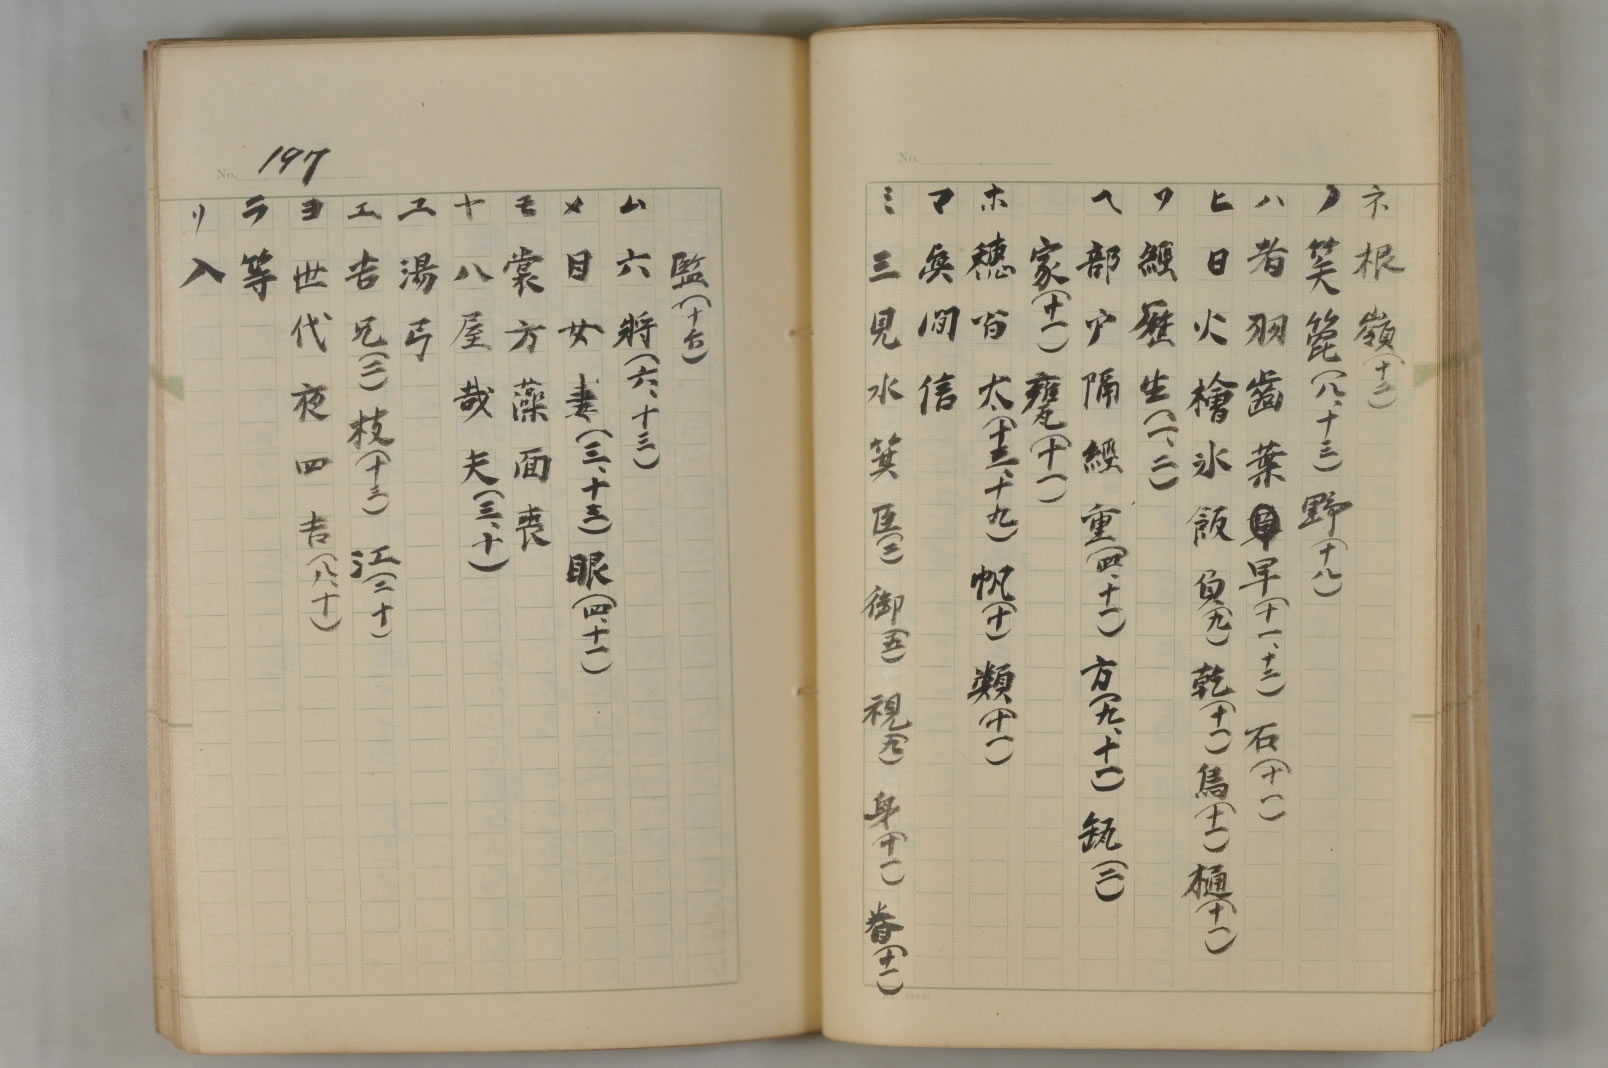 No.
ネ 根 嶺(十二)
ノ 笑 箆(八、十三) 野(十八)
ハ 者 羽 齒 葉 早(十一、十三) 石(十一)
ヒ 日 火 檜 氷 飯 負(九) 乾(十一) 樋(十一)
フ 經 歷 生(一、二)
ヘ 部 戸 隔 經 重(四、十一) 方(九、十一) 缻(二)
家(十一) 甕(十一)
ホ 穗 百 太(十三、十九) 帆(十) 類(十一)
マ 眞 間 信
ミ 三 見 水 箕 臣(二) 御(五) 視(九) 身(十一) 眷(十一)
No. 197
監(十六)
ム 六 將(六、十三)
メ 目 女 妻(三、十三) 眼(四、十一)
モ 裳 方 藻 面 喪
ヤ 八 屋 哉 夫(三、十)
ユ 湯 弓
エ 吉 兄(二) 枝(十三) 江(二十)
ヨ 世 代 夜 四 吉(八、十)
ラ 等
リ 入